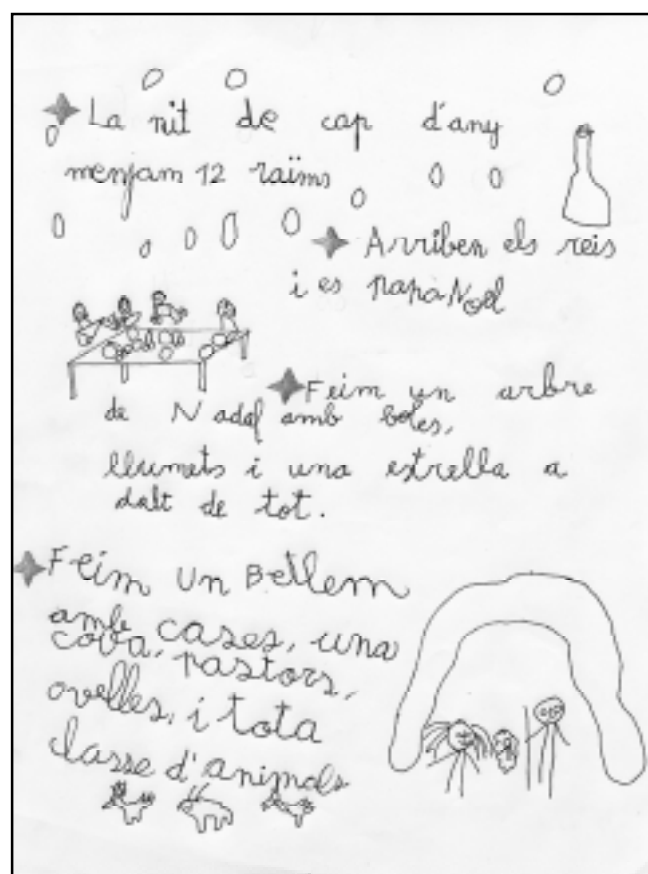 La nit de cap d'any
menjam 12 raïms
Arriben els reis
i es papa Noel
Feim un arbre
de Nadal amb boles,
llumets i una estrella a
dalt de tot.
Feim un Betlem
amb cases, una
cova, pastors,
ovelles, i tota
classe d'animals